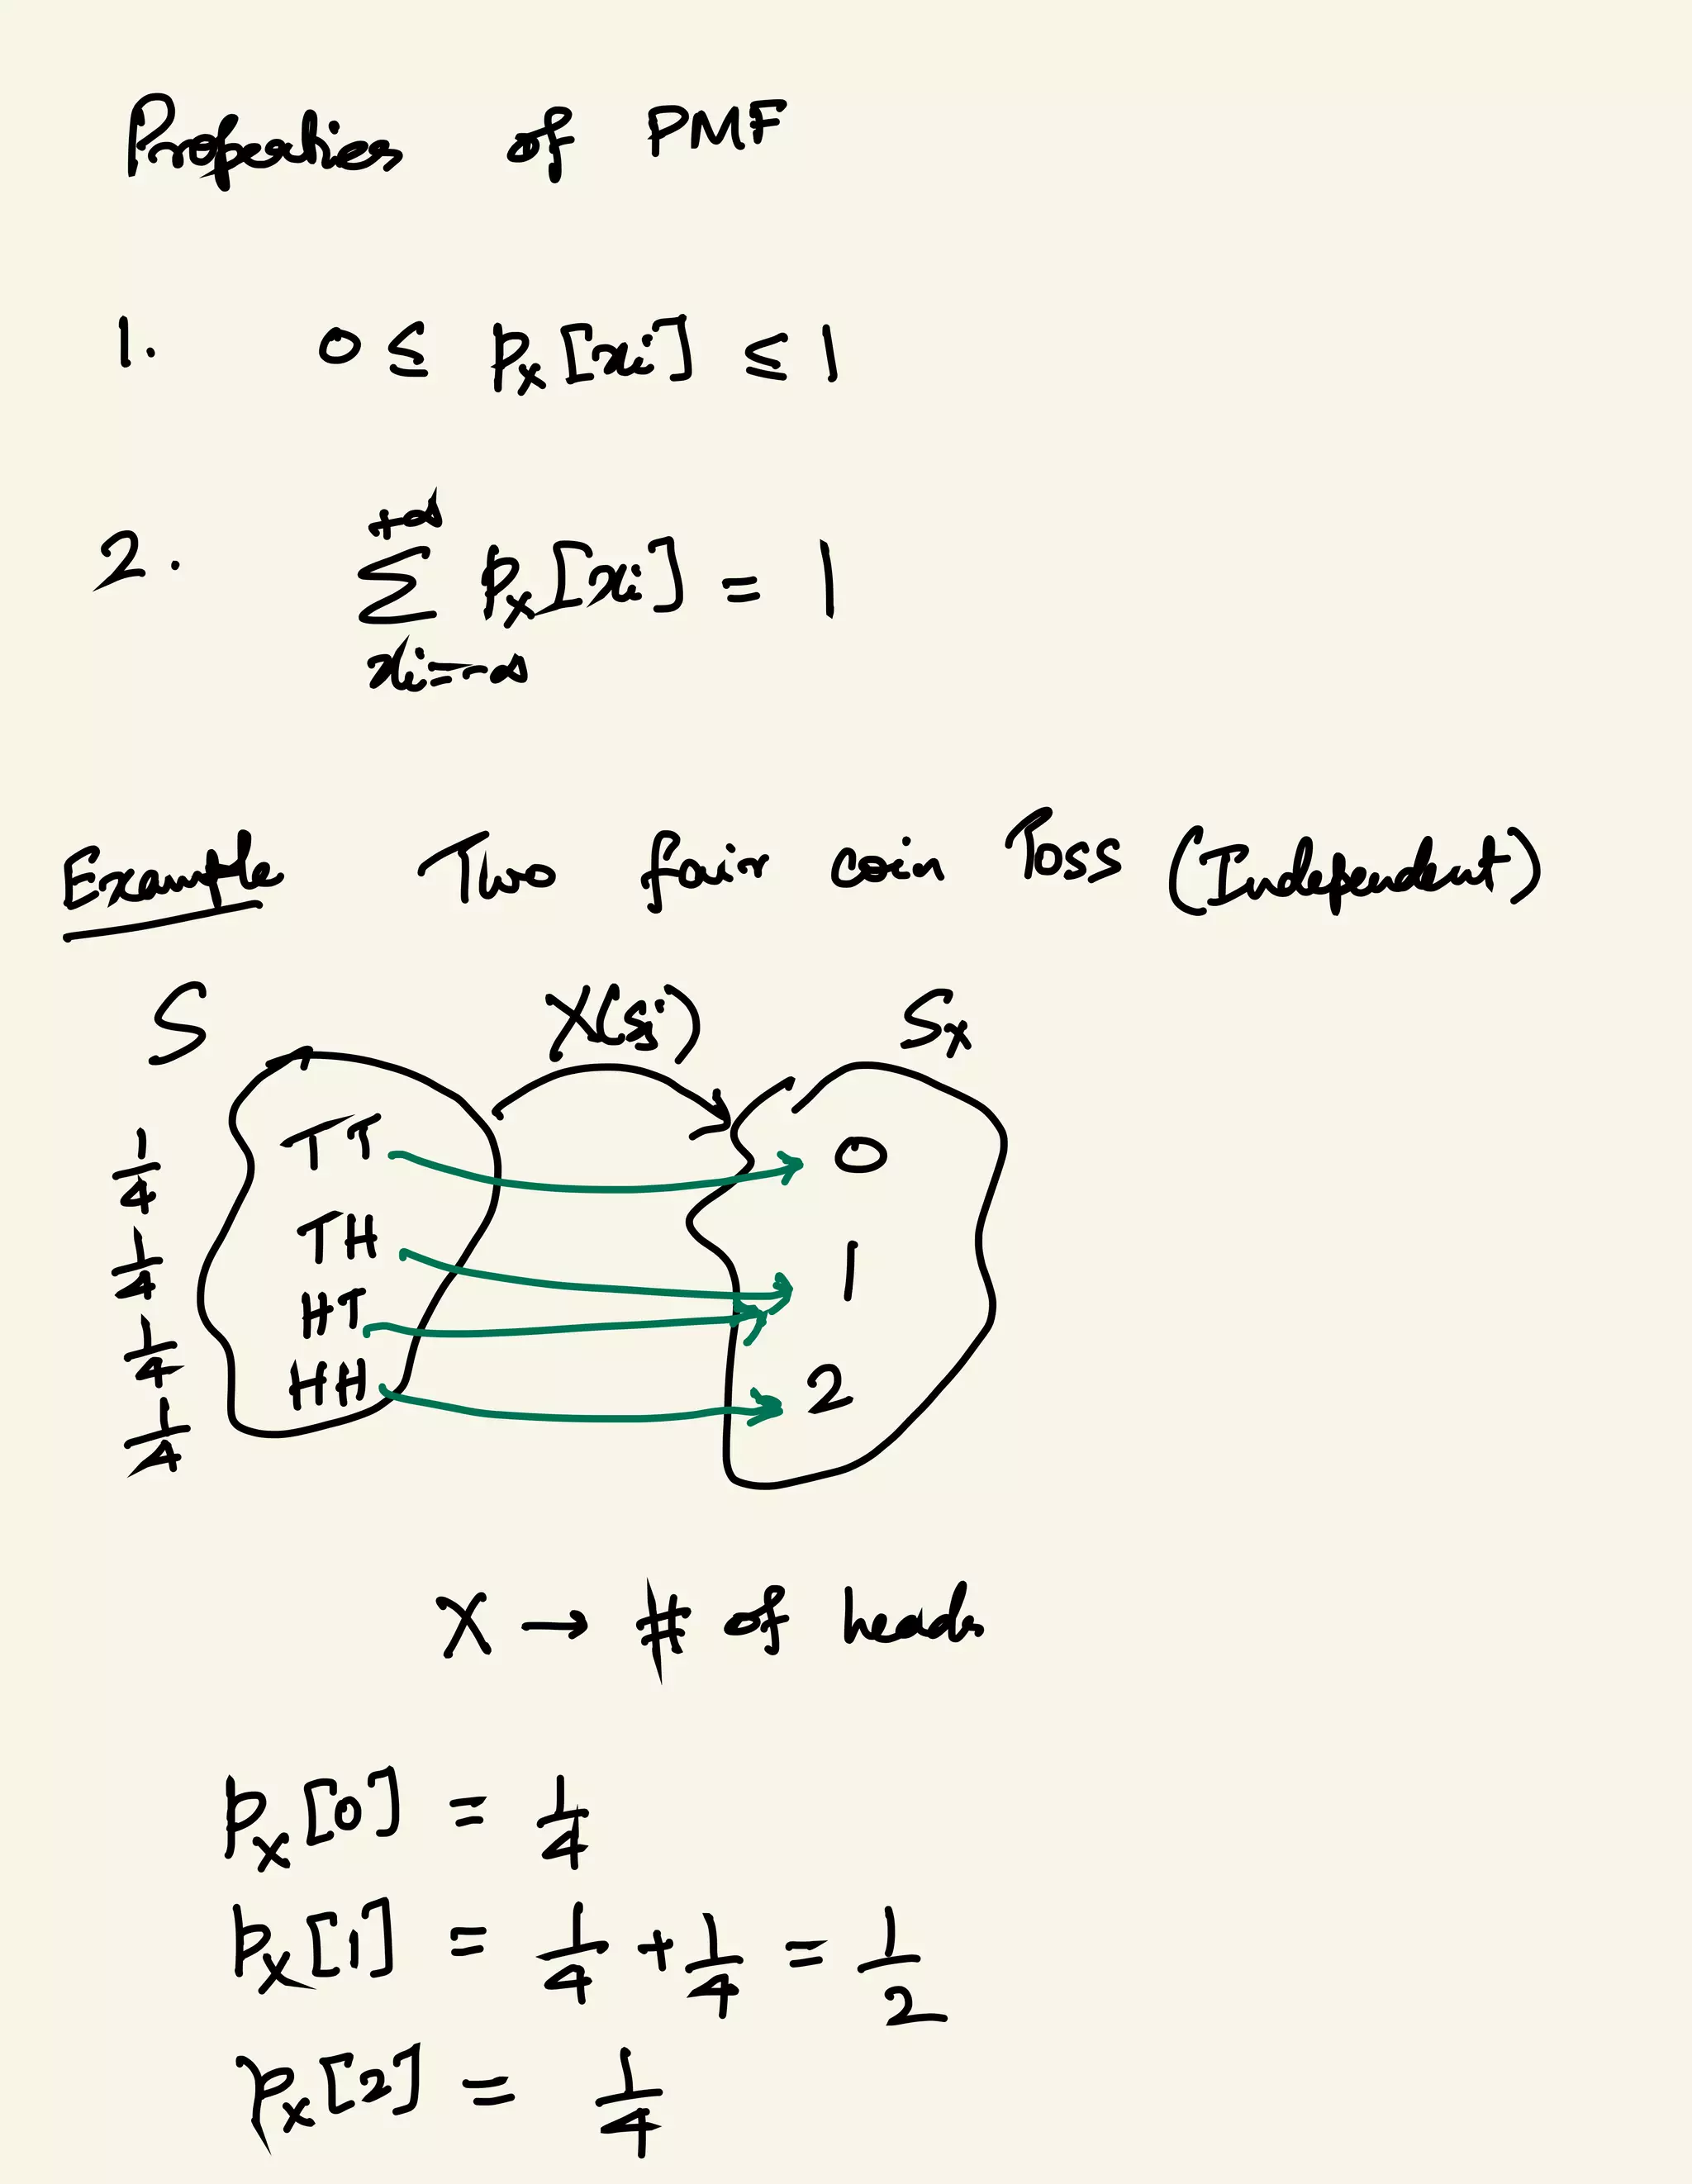 Properties of PMF
1. 0 ≤ p_X[x_i] ≤ 1
2. ∑_{x_i=-∞}^{+∞} p_X[x_i] = 1
Example Two fair coin Toss (Independent)
S X(s_i) S_X
1/4 TT 0
1/4 TH 1
1/4 HT
1/4 HH 2
X → # of heads
p_X[0] = 1/4
p_X[1] = 1/4 + 1/4 = 1/2
p_X[2] = 1/4